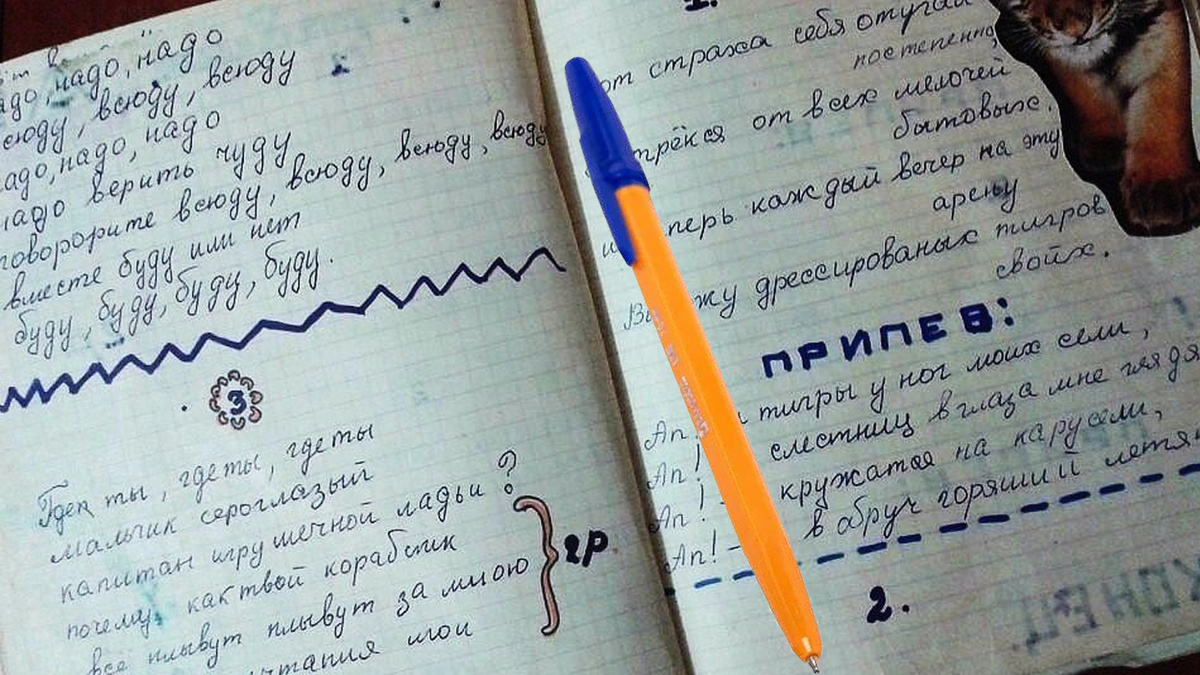 надо, надо
всюду, всюду
надо, надо
надо верить чуду
говорорите всюду, всюду, всюду, всюду
вместе буду или нет
буду, буду, буду, буду.
3
ты, где ты, где ты
мальчик сероглазый
капитан игрушечной ладьи ?
почему, как твой кораблик
все плывут плывут за мною
мои
гр.
1.
от страха себя отучаи
постепенно,
от всех мелочей
бытовых.
каждый вечер на эту
арену
дрессированых тигров
свойх.
ПРИПЕВ:
Ап! тигры у ног моих сели,
Ап! слестниц в глаза мне глядя
Ап! - кружатся на карусели,
Ап! - в обруч горящий летя
2.
КОНЕЦ